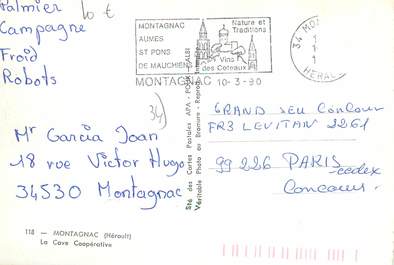 Palmier
10 €
Campagne
Froid
Robots
MONTAGNAC
AUMES
ST PONS
DE MAUCHIENS
Nature et
Traditions
Vins
des Coteaux
MONTAGNAC 10-3-90
34 MON
HERAU
34)
Mr Garcia Joan
18 rue Victor Hugo
34530 Montagnac
118 — MONTAGNAC (Hérault)
La Cave Coopérative
Sté des Cartes Postales APA - POUX - ALBI
Véritable Photo au Bromure - Reproduction
GRAND JEU Concour
FR3 LEVITAN 2261
99226 PARIS
cedex
Concours.